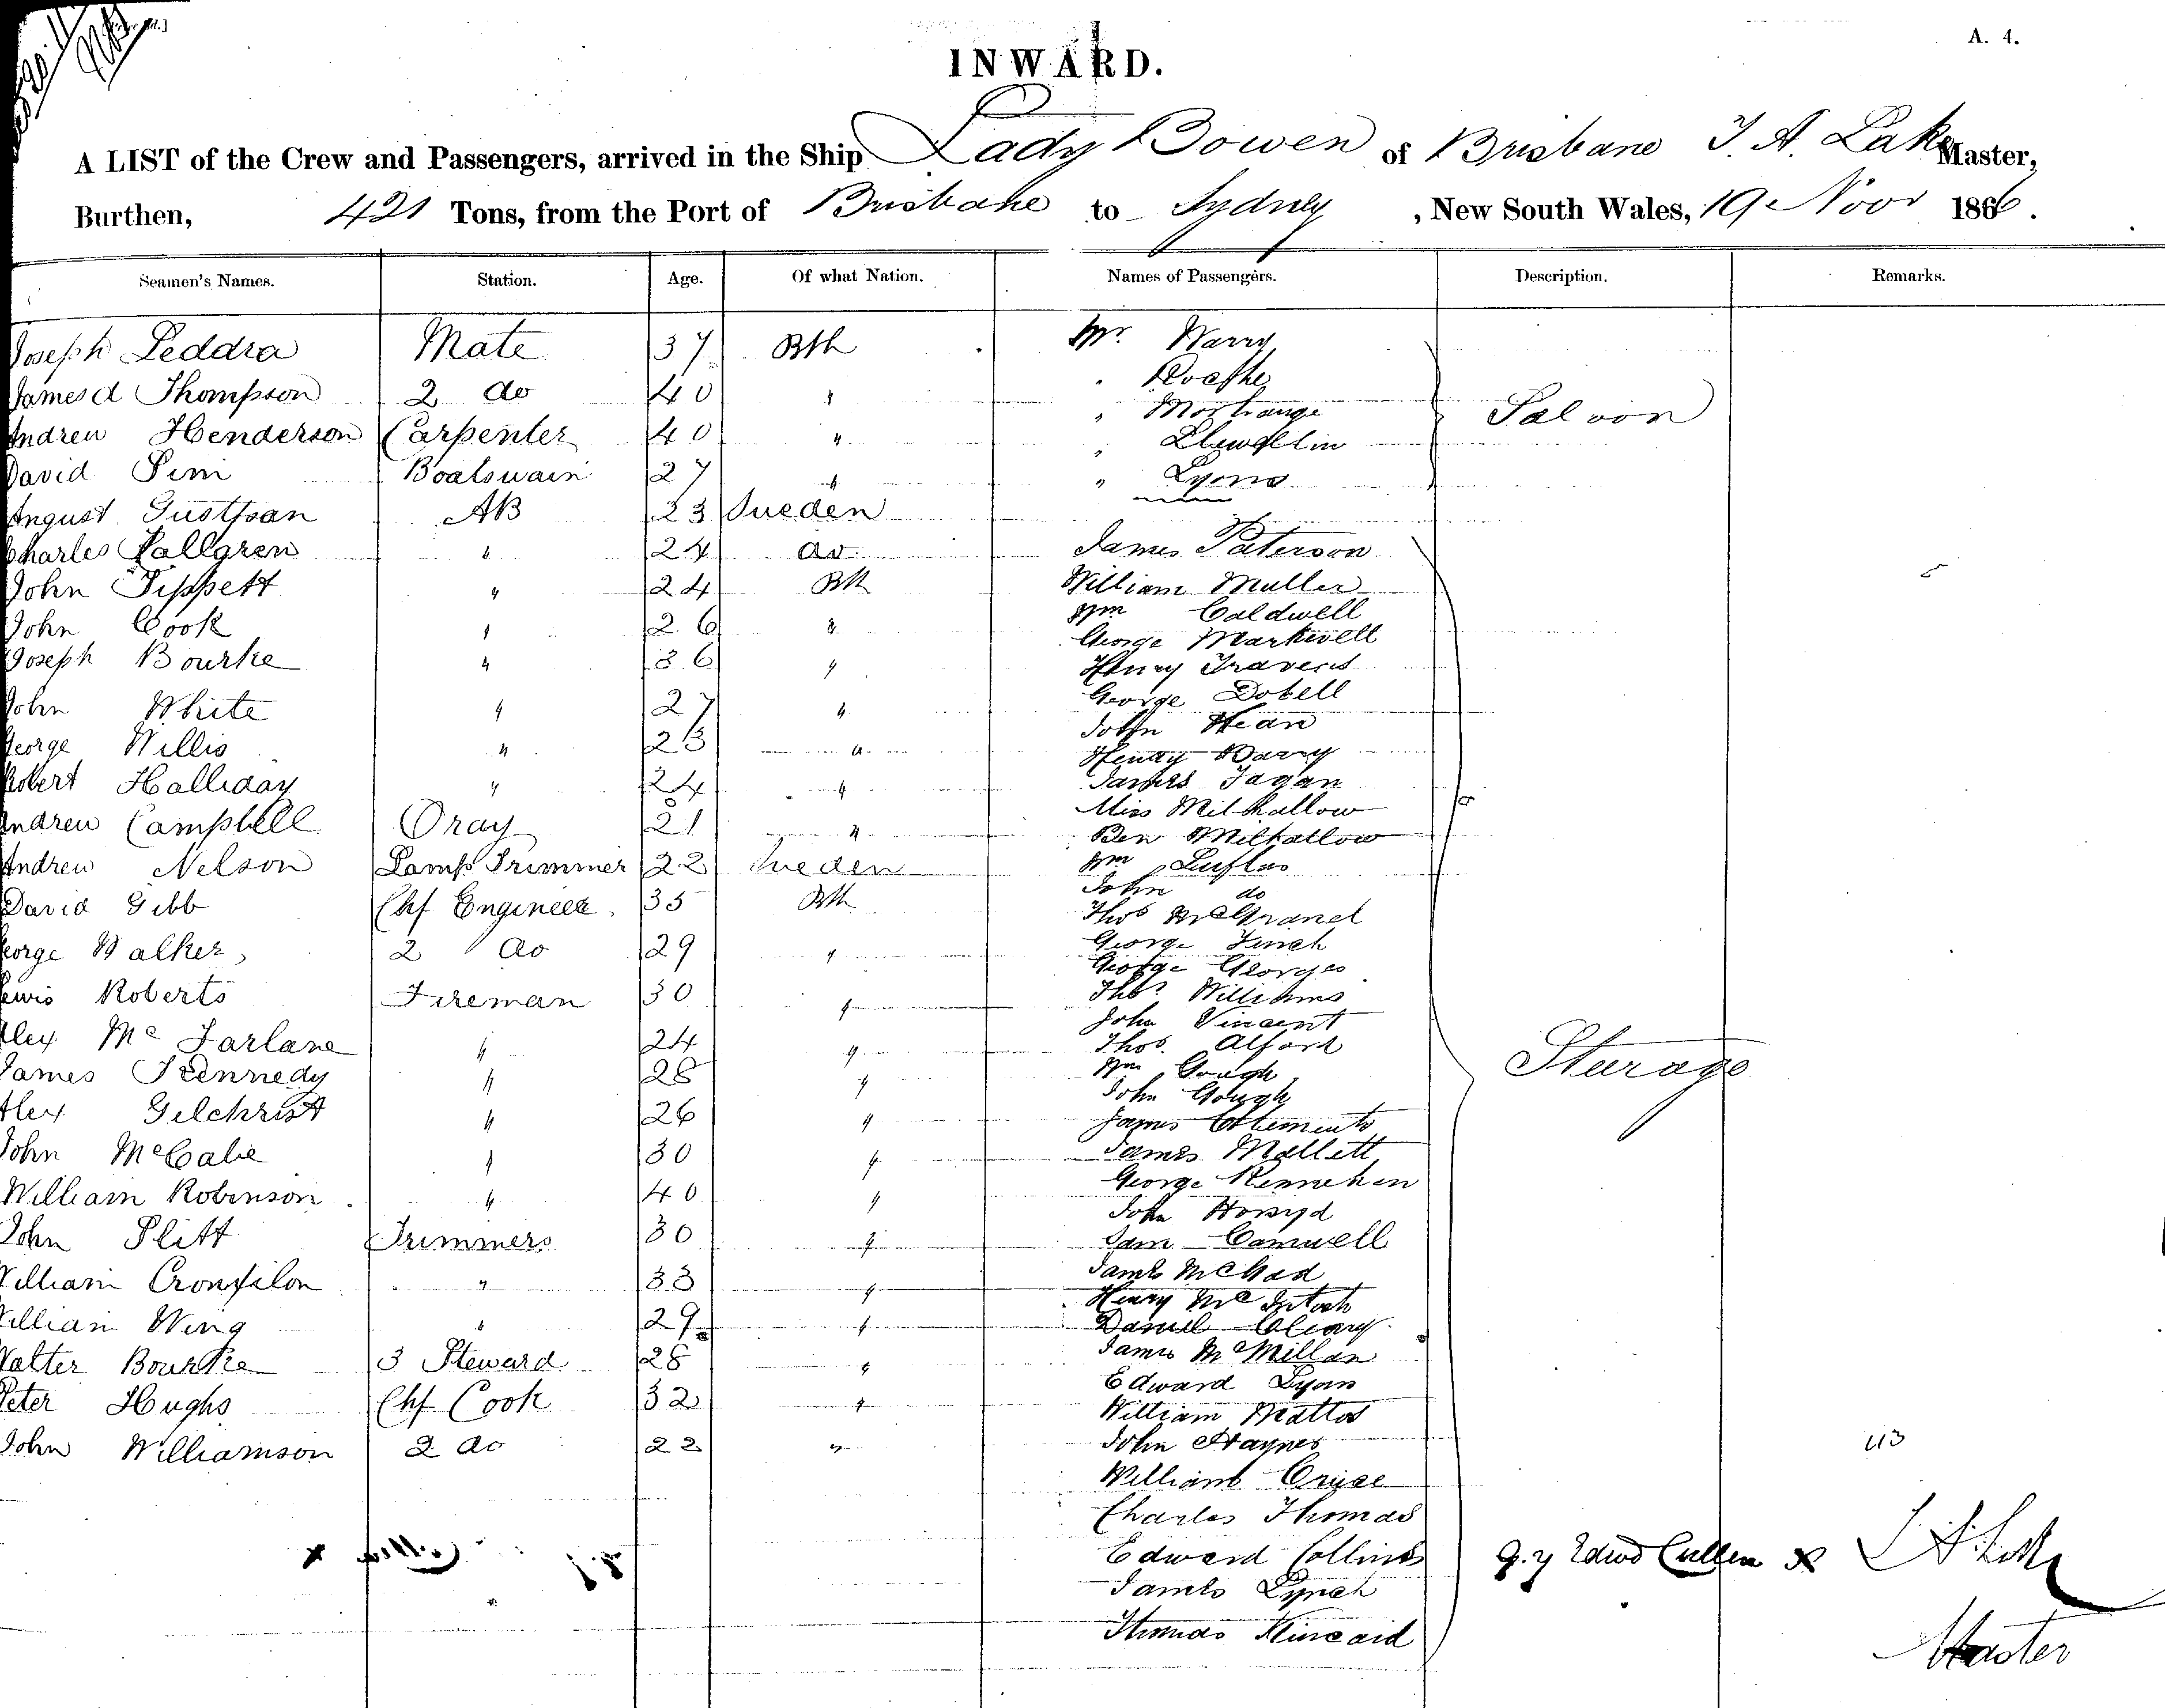 A. 4.
INWARD.
A LIST of the Crew and Passengers, arrived in the Ship Lady Bowen of Brisbane J. A. Lake Master,
Burthen, 421 Tons, from the Port of Brisbane to Sydney, New South Wales, 19 Novr 1866.
Seamen's Names. Station. Age. Of what Nation. Names of Passengers. Description. Remarks.
Joseph Leddra Mate 37 Bth Mr. Harry
James d Thompson 2 do 40 "
" Mortrange
Saloon
Andrew Henderson Carpenter 40 " " Llewellin
David Sim Boatswain 27 " " Lyons
August Gustfsan AB 23 Sueden
Charles Kallgren " 24 do James Paterson
John Tippett " 24 Bth William Muller
John Cook " 26 " Wm Caldwell
George Markwell
Joseph Bourke " 36 " Henry Travers
George Dobell
John White " 27 " John Hean
George Willis " 23 " Henry Barry
Robert Halliday " 24 " James Fagan
Miss Milhallow
Andrew Campbell Dray 21 " Ben Milhallow
Andrew Nelson Lamp Trimmer 22 Sueden Wm
John do
David Gibb Chf Engineer 35 Bth Thos
George Walker 2 do 29 " George Finch
George Georges
Lewis Roberts Fireman 30 " Thos Williams
John Vincent
Alex Mc Farlane " 24 " Thos. Alford
Sturage
James Kennedy " 28 " Wm Gough
John Gough
Alex Gilchrist " 26 " James Clements
John McCabe " 30 " James Mellett
William Robinson " 40 " George
John
John Plitt Trimmers 30 " Sam Camwell
William " 33 " James
Henry McIntosh
William Wing " 29 " Daniel Cleary
Walter Bourke 3 Steward 28 " James McMillan
Edward Lyan
Peter Hughs Chf Cook 32 " William
John Williamson 2 do 22 " John Haynes
William
Charles Thomas
Edward Collins
Edwd Cullen
J A Lake
James Lynch
Thomas Kincaid
Master